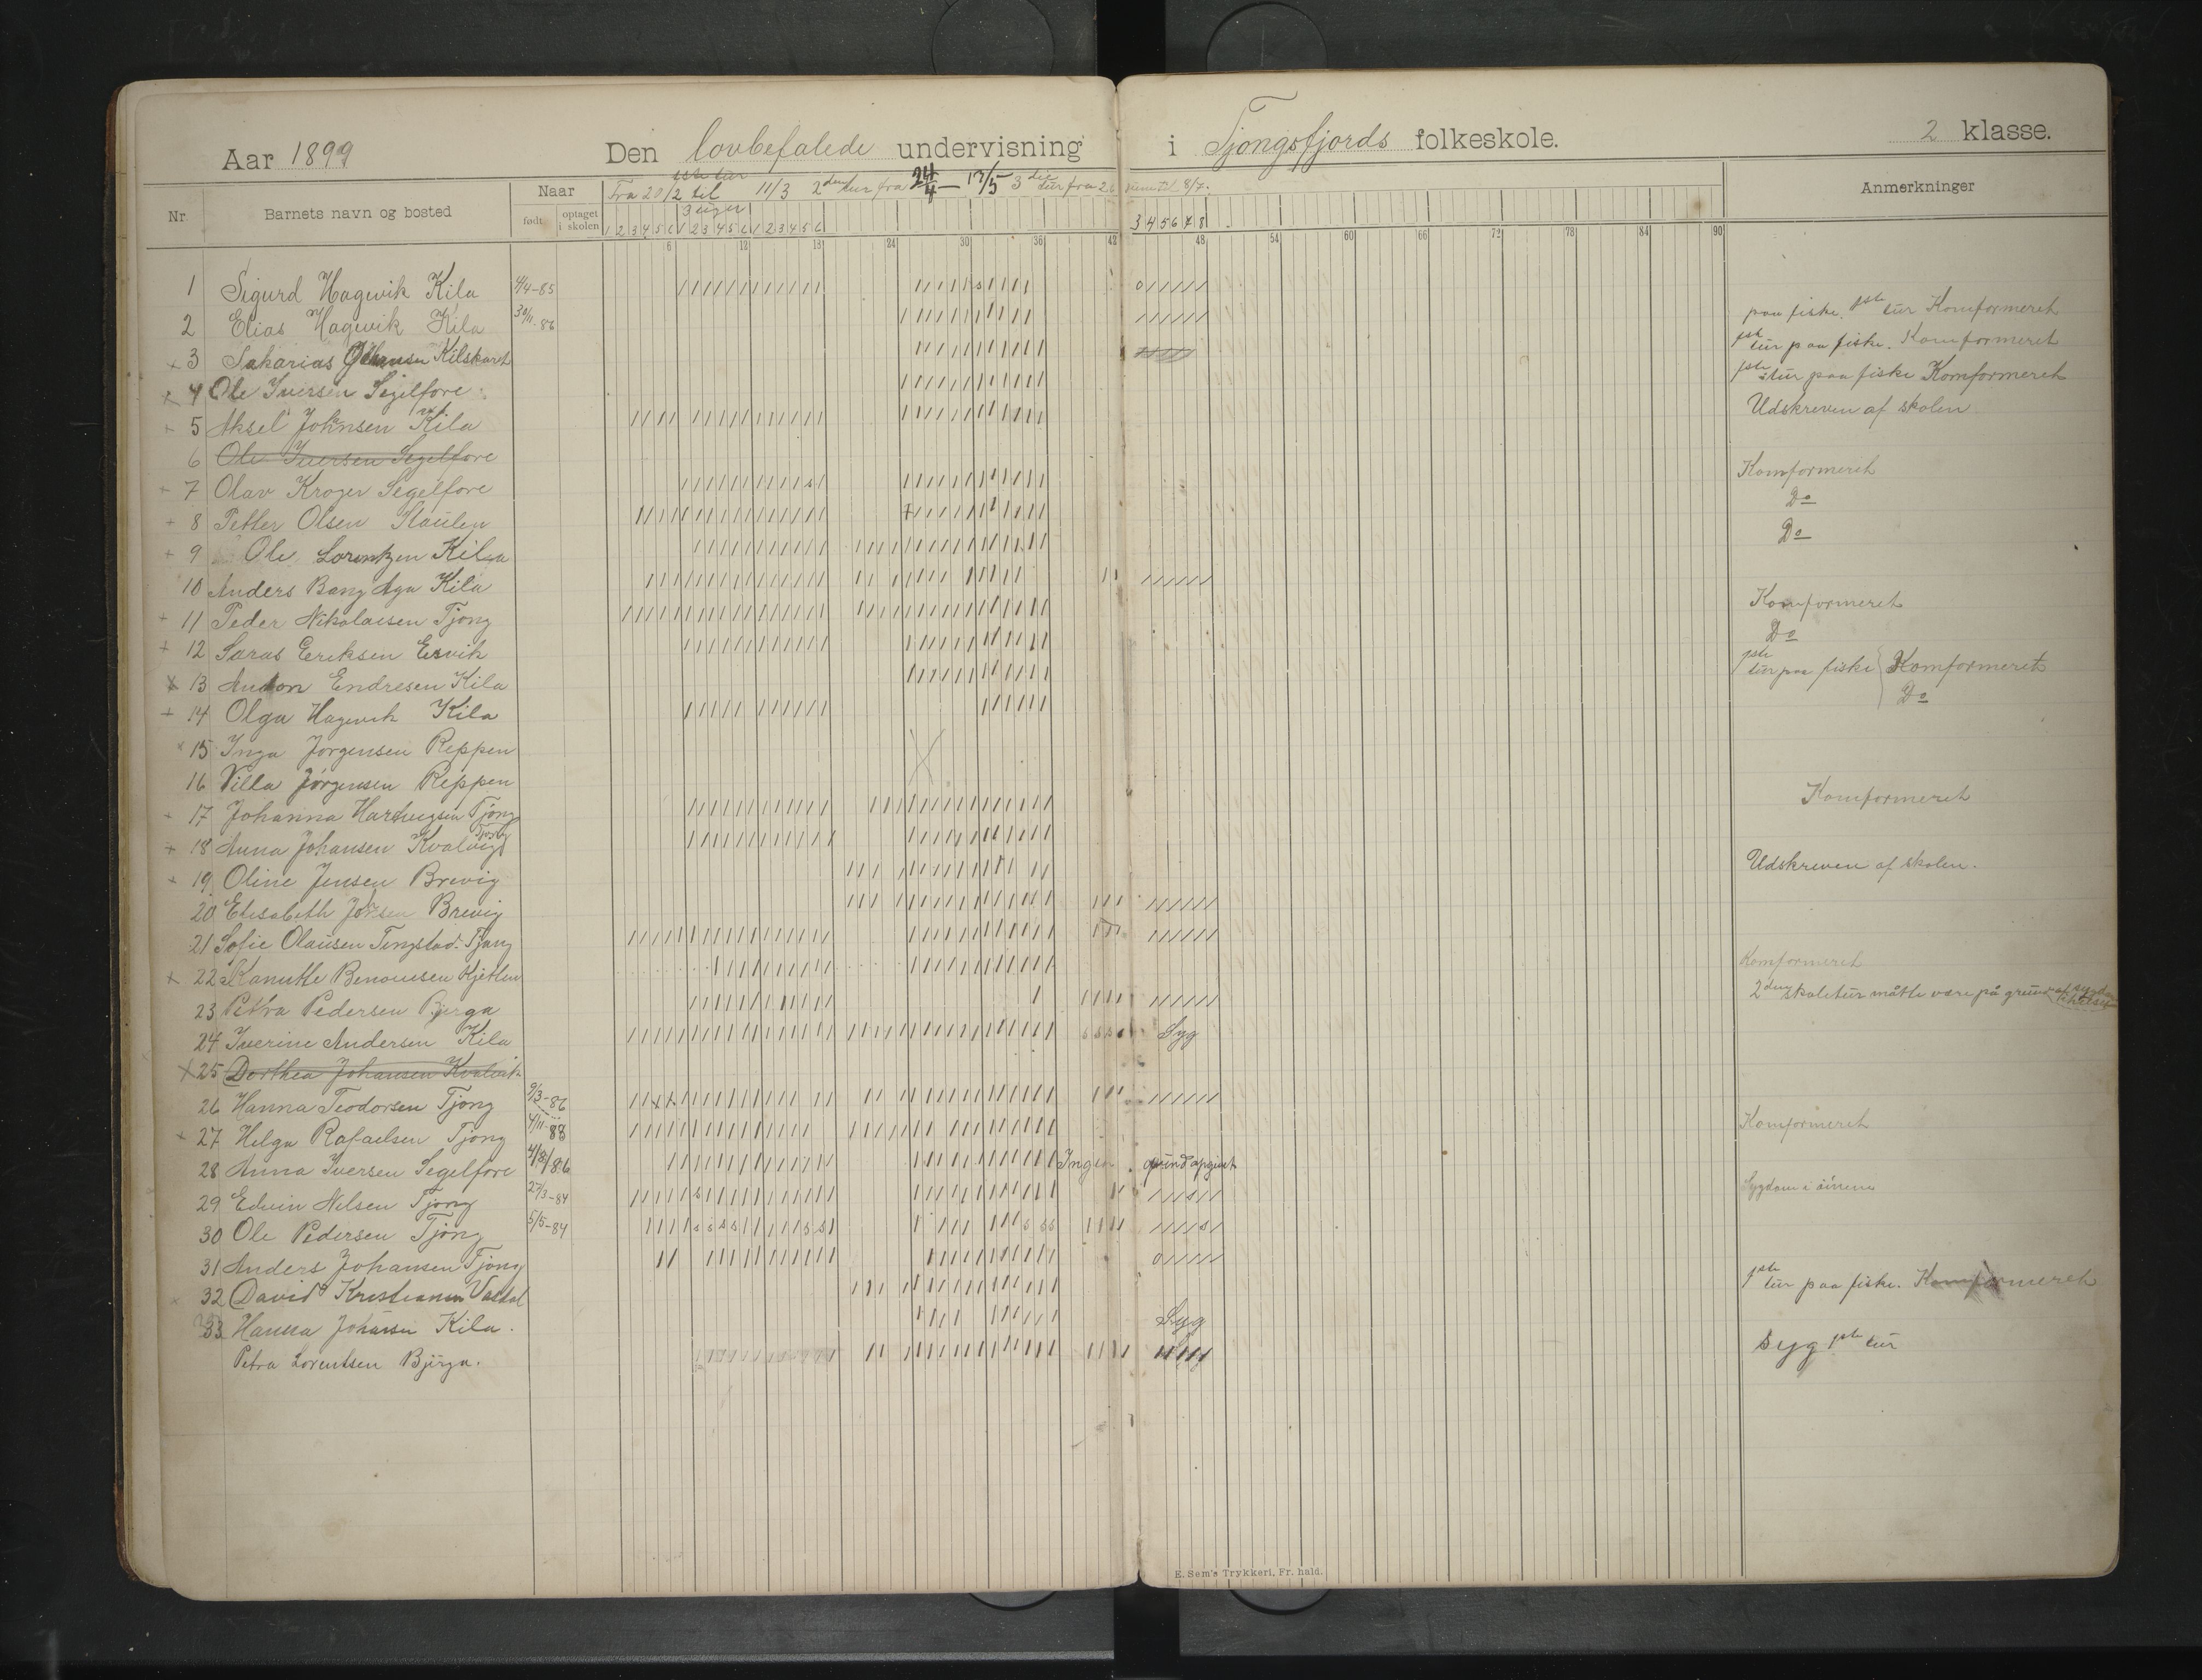 Aar 1899 Den lovbefalede undervisning i Tjongsfjords folkeskole. 2 klasse.
Nr Barnets navn og bosted Naar født optaget i skolen Anmerkninger
1ste tur
Fra 20/2 til 11/3 2den tur fra 24/4 — 13/5 3die tur fra 26 til 8/7.
3 uger
1 2 3 4 5 6 1 2 3 4 5 6 1 2 3 4 5 6 3 4 5 6 7 8
6 12 18 24 30 36 42 48 54 60 66 72 78 84 90
1 Sigurd Hagevik Kila 4/4-85
2 Elias Hagevik Kila 30/11-86 paa fiske. 1ste tur Komformeret
3 Sakarias Johansen Kilskaret 1ste tur paa fiske. Komformeret
4 Ole Iversen Segelfore 1ste tur paa fiske Komformeret
5 Aksel Johnsen Kila Udskreven af skolen
6 Ole Iversen Segelfore
7 Olav Kroger Segelfore Komformeret
8 Petter Olsen Staulen Do
9 Ole Lorentzen Kila Do
10 Anders Bang Aga Kila
11 Peder Nikolaisen Tjong Komformeret
12 Saras Eriksen Esvik Do
13 Anton Endresen Kila 1ste tur paa fiske Komformeret
14 Olga Hagevik Kila Do
15 Inga Jørgensen Reppen
16 Villa Jørgensen Reppen
17 Johanna Hartvigsen Tjong Komformeret
18 Anna Johansen Kvalvig Tjong
19 Oline Jensen Brevig Udskreven af skolen.
20 Elisabeth Jensen Brevig
21 Sofie Olausen Tingstad. Tjong
22 Kanutte Benonisen Kjetlen Komformeret
23 Petra Pedersen Bjerga 2den skoletur måtte være på grund af
24 Iverine Andersen Kila Syg
25 Dorthea Johansen Kvalvik
26 Hanna Teodorsen Tjong 9/3-86
27 Helga Rafaelsen Tjong 4/11-88 Komformeret
28 Anna Iversen Segelfore 4/8/86 Ingen grund opgivet
29 Edvin Nilsen Tjong 27/3-84 Sygdom i öinene
30 Ole Pedersen Tjong 5/5-84
31 Anders Johansen Tjong
32 David Kristiansen Vasdal 1ste tur paa fiske. Komformeret
33 Hanna Johansen Kila. Syg
Petra Lorentsen Bjerga. Syg 1ste tur
E. Sem's Trykkeri, Fr. hald.